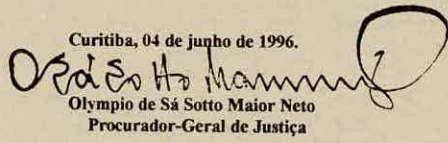 Curitiba, 04 de junho de 1996.
Olympio de Sá Sotto Maior Neto
Procurador-Geral de Justiça